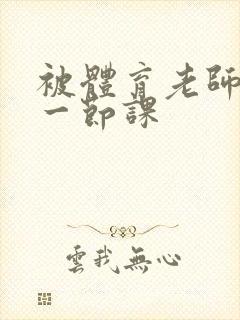 被體育老師
一節課
雲我無心